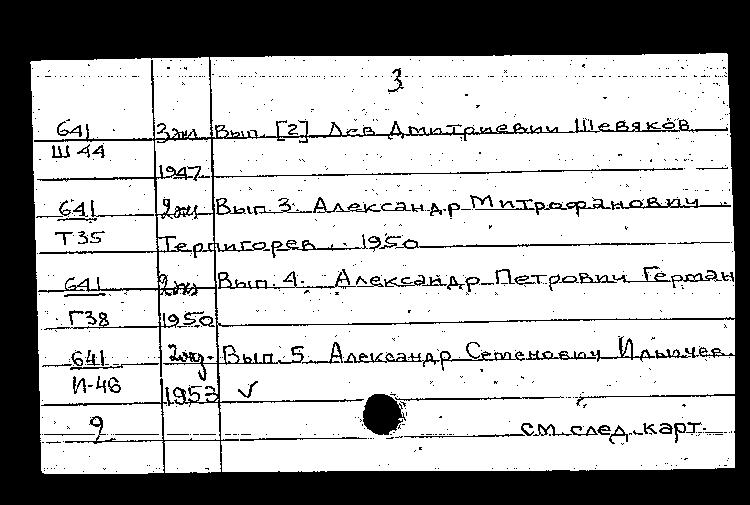 3
641 3экз Вып. [2] Лев Дмитриевич Шевяков
Ш 44
1947
641 2экз Вып. 3. Александр Митрофанович
Т35 Терпигорев. 1950
641 2экз Вып. 4. Александр Петрович Герман
Г38 1950
641 2экз. Вып. 5. Александр Семенович Ильичев.
И-46 1953 ✓
9 см. след. карт.